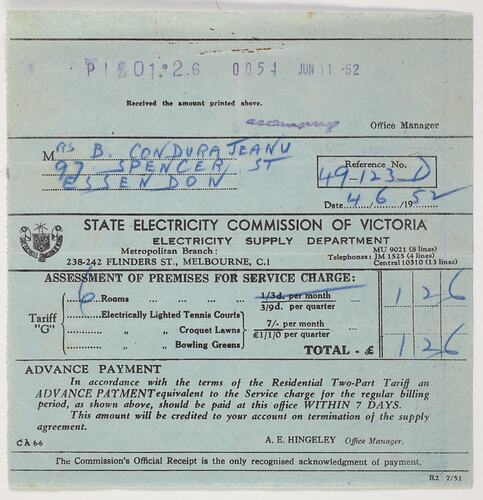 P1801.2.6 0054 JUN 11 -52
Received the amount printed above.
Office Manager
Mrs B. CONDURATEANU
97 SPENCER ST
ESSENDON
Reference No.
49-123 D
Date 4/6/1952
STATE ELECTRICITY COMMISSION OF VICTORIA
ELECTRICITY SUPPLY DEPARTMENT
Metropolitan Branch:
238-242 FLINDERS ST., MELBOURNE, C.1
MU 9021 (8 lines)
Telephones: JM 1525 (4 lines)
Central 10310 (13 lines)
ASSESSMENT OF PREMISES FOR SERVICE CHARGE:
6 Rooms 1/3d. per month 1 2 6
3/9d. per quarter
Tariff "G"
Electrically Lighted Tennis Courts
" " Croquet Lawns 7/- per month
£1/1/0 per quarter
" " Bowling Greens
TOTAL - £ 1 2 6
ADVANCE PAYMENT
In accordance with the terms of the Residential Two-Part Tariff an
ADVANCE PAYMENT equivalent to the Service charge for the regular billing
period, as shown above, should be paid at this office WITHIN 7 DAYS.
This amount will be credited to your account on termination of the supply
agreement.
CA 66
A. E. HINGELEY Office Manager.
The Commission's Official Receipt is the only recognised acknowledgment of payment.
R2 7/51